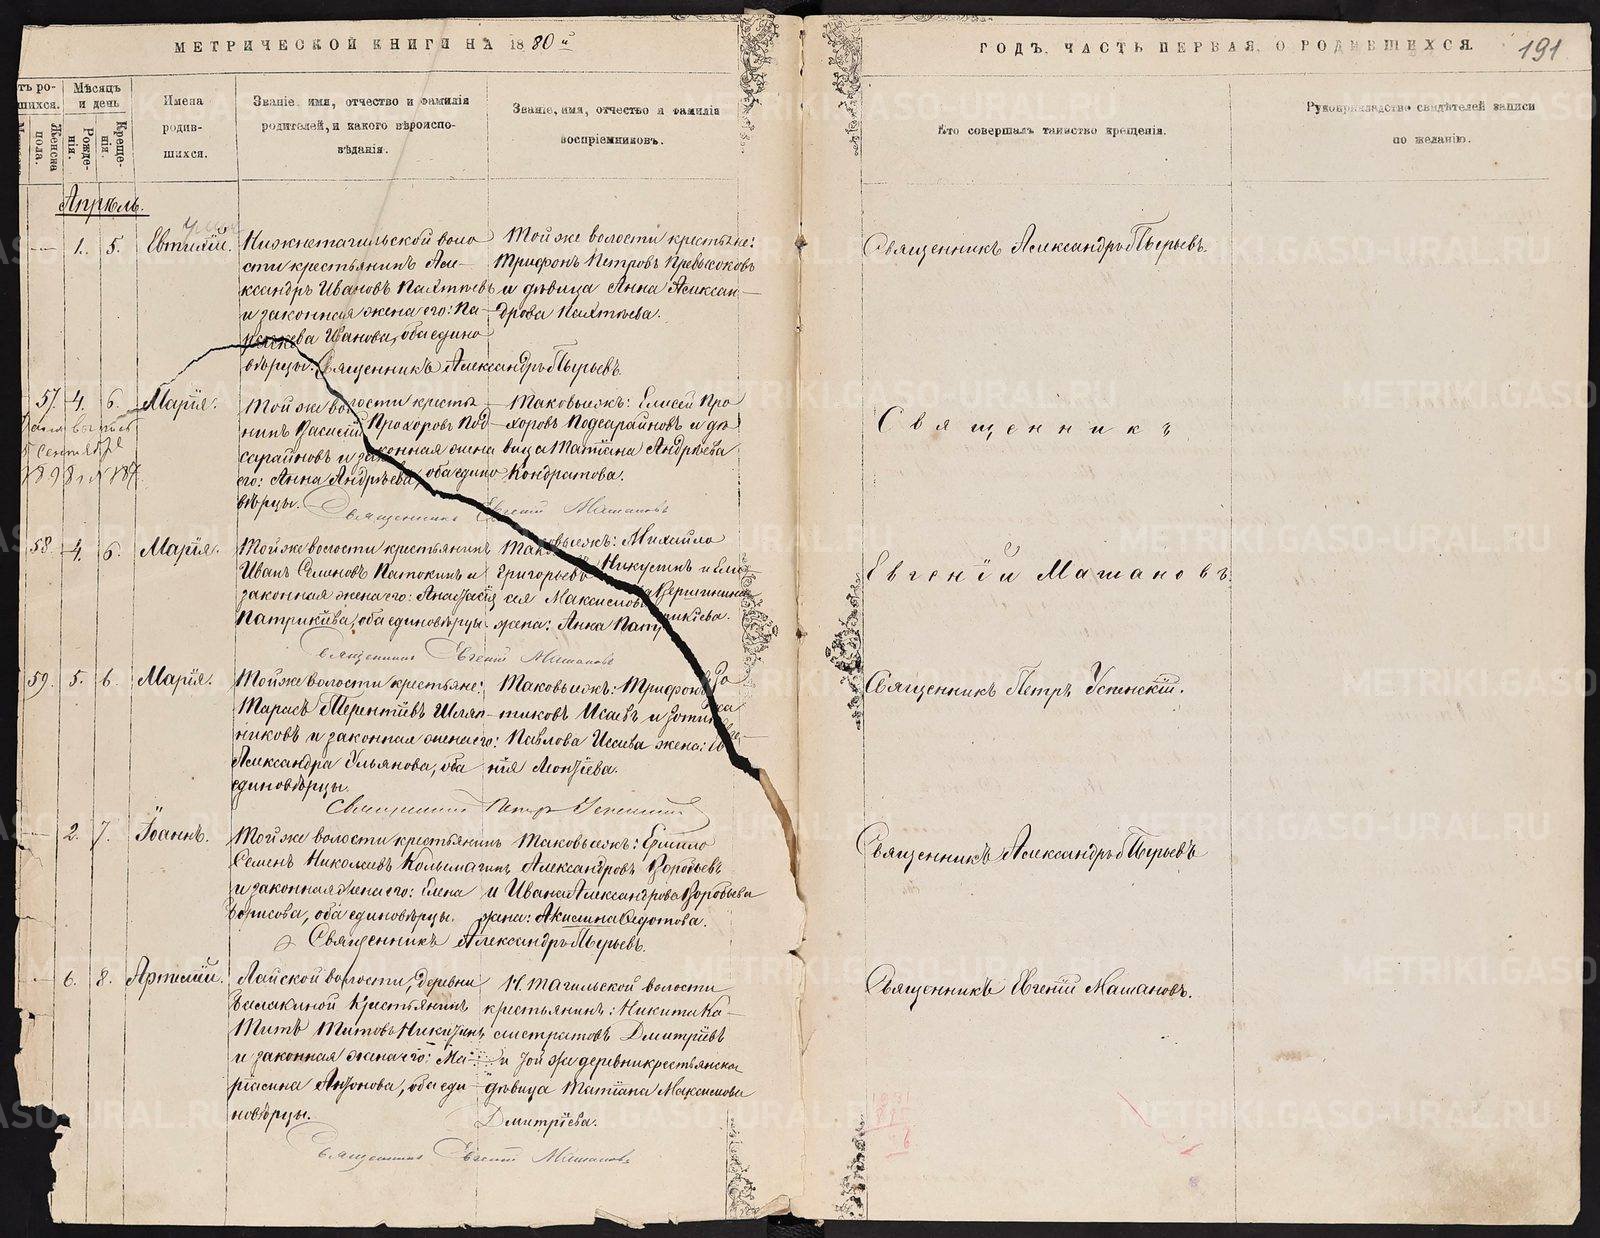 МЕТРИЧЕСКОЙ КНИГИ НА 1880й
ГОДЪ, ЧАСТЬ ПЕРВАЯ, О РОДИВШИХСЯ.
191
ть ро-
шихся.
Женска
пола.
Мѣсяцъ
и день
Рожде-
нія.
Креще-
нія.
Имена
родив-
шихся.
Званіе, имя, отчество и фамилія
родителей, и какого вѣроиспо-
вѣданія.
Званіе, имя, отчество и фамилія
воспріемниковъ.
Кто совершалъ таинство крещенія.
Рукоприкладство свидѣтелей записи
по желанію.
Апрѣль.
1. 5. Евтихій.
Нижнетагильской воло
сти крестьянинъ Але-
ксандръ Ивановъ Палтѣевъ
и законная жена его: Па-
раскева Иванова, оба едино
вѣрцы. Священникъ Александръ Пырьевъ
Той же волости крестьяне:
Трифонъ Петровъ
и дѣвица Анна Александ-
рова Палтѣева.
Священникъ Александръ Пырьевъ.
57. 4. 6. Марія.
Той же волости крестья
нинъ Василій Прохоровъ Под-
сарайновъ и законная жена
его: Анна Андрѣева, оба едино
вѣрцы. Священникъ Евгеній Машановъ
Таковыежъ: Елисей Про
хоровъ Подсарайновъ и дѣ
вица Татіана Андрѣева
Кондратова.
Священникъ
58. 4. 6. Марія.
Той же волости крестьянинъ
Иванъ Семеновъ Патокинъ и
законная жена его: Анастасія
Патрикѣева, оба единовѣрцы.
Священникъ Евгеній Машановъ
Таковыежъ: Михайло
Григорьевъ Никулинъ и
Максимова
жена: Анна Патрикѣева.
Евгеній Машановъ
59. 5. 6. Марія.
Той же волости крестьяне:
Тарасъ Терентіевъ Шляп-
никовъ и законная жена его:
Александра Ульянова, оба
единовѣрцы.
Священникъ Петръ Успенскій
Таковыежъ: Трифонъ
Исаевъ и
Павлова Исаева жена:
нія
Священникъ Петръ Успенскій.
2. 7. Іоаннъ.
Той же волости крестьянинъ
Семенъ Николаевъ Колмагинъ
и законная жена его: Елена
Борисова, оба единовѣрцы.
Священникъ Александръ Пырьевъ.
Таковыежъ: Ермило
Александровъ Воробьевъ
и Ивана Александрова Воробьева
жена: Акилина Ѳедотова.
Священникъ Александръ Пырьевъ
6. 8. Артемій.
Лайской волости, деревни
Балакиной Крестьянинъ
Титъ Титовъ Никитинъ
и законная жена его: Ма-
ріамна Антонова, оба еди-
новѣрцы.
Священникъ Евгеній Машановъ
Н. Тагильской волости
крестьянинъ: Никита Ка-
листратовъ Дмитріевъ
и той же деревни крестьянска
дѣвица Татіана Максимова
Дмитріева.
Священникъ Евгеній Машановъ.
METRIKI.GASO-URAL.RU